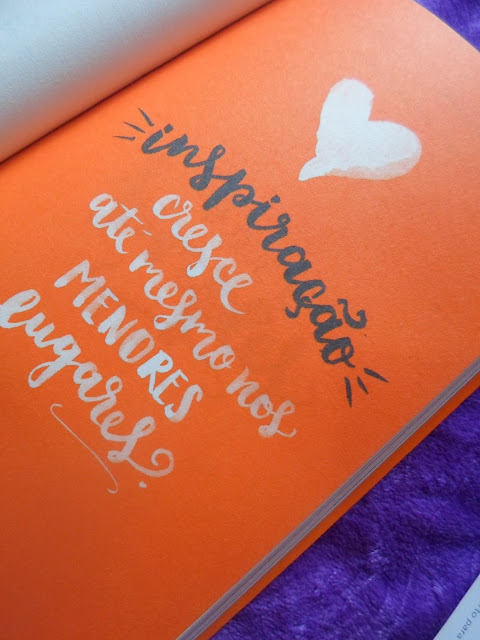 inspiração
cresce
até mesmo nos
MENORES
lugares.
to para